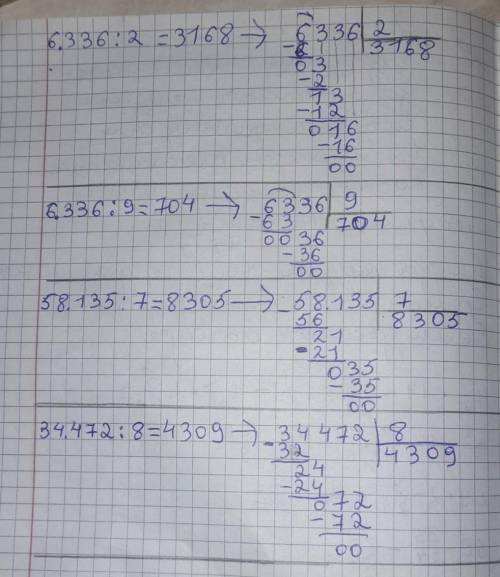 6.336 : 2 = 3168 → 6336 | 2
- 6 3168
03
- 2
13
- 12
016
- 16
00
6.336 : 9 = 704 → 6336 | 9
- 63 704
0036
- 36
00
58.135 : 7 = 8305 → 58.135 | 7
- 56 8305
21
- 21
035
- 35
00
34.472 : 8 = 4309 → 34472 | 8
- 32 4309
24
- 24
072
- 72
00